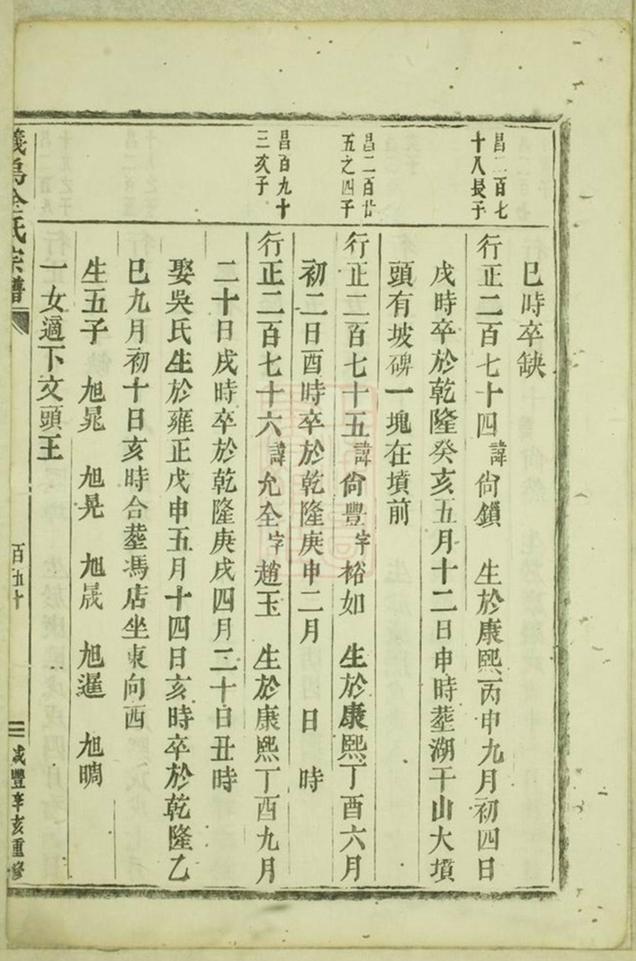 巳時卒缺
昌二百七
十八長子
行正二百七十四諱尙鎖 生於康熙丙申九月初四日
戌時卒於乾隆癸亥五月十二日申時塟湖干山大墳
頭有坡碑一塊在墳前
昌二百廿
五之四子
行正二百七十五諱尙豐字裕如 生於康熙丁酉六月
初二日酉時卒於乾隆庚申二月 日 時
昌百九十
三次子
行正二百七十六諱允全字趙玉 生於康熙丁酉九月
二十日戌時卒於乾隆庚戌四月二十日丑時
娶吳氏生於雍正戊申五月十四日亥時卒於乾隆乙
巳九月初十日亥時合塟馮店坐東向西
生五子 旭晁 旭晃 旭晟 旭暹 旭晭
一女適下文頭王
義烏金氏宗譜
百五十
咸豐辛亥重修